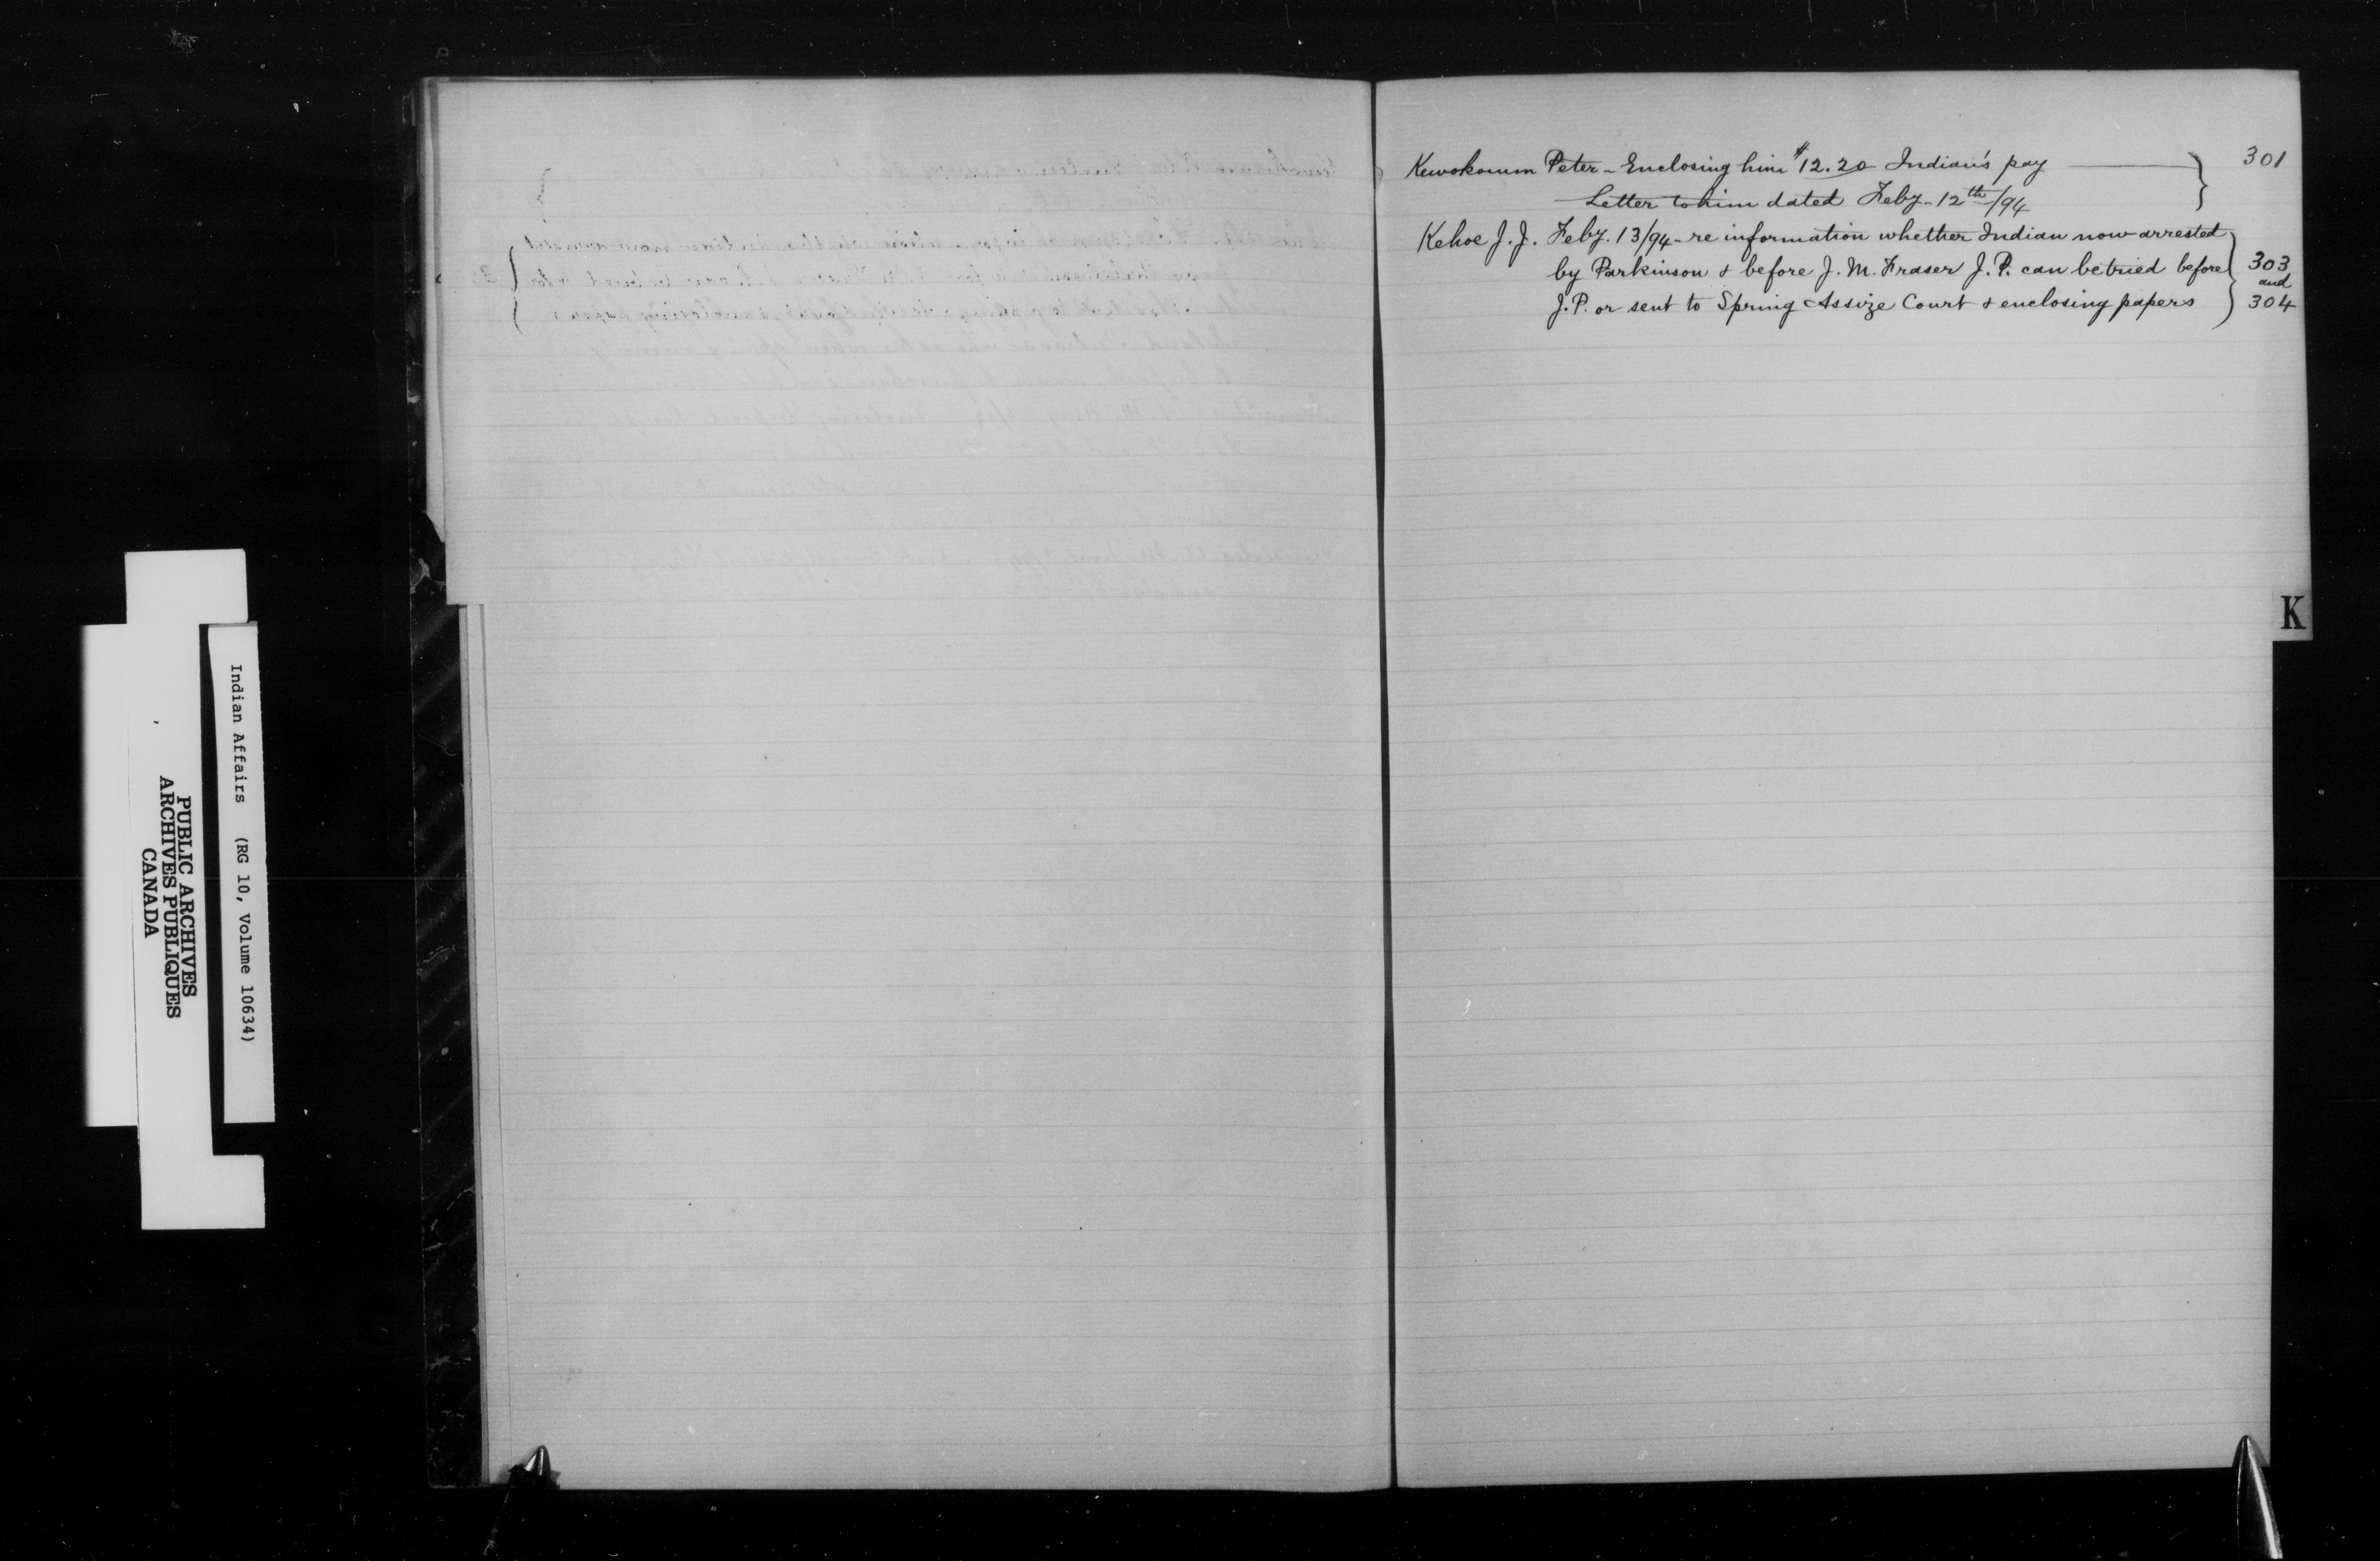 Kewokomm Peter - Enclosing him $12.20 Indian's pay 301
Letter to him dated Feby - 12th/94
Kehoe J. J. Feby. 13/94 - re information whether Indian now arrested
by Parkinson & before J. M. Fraser J. P. can be tried before 303
and
J. P. or sent to Spring Assize Court & enclosing papers 304
K
Indian Affairs (RG 10, Volume 10634)
PUBLIC ARCHIVES
ARCHIVES PUBLIQUES
CANADA